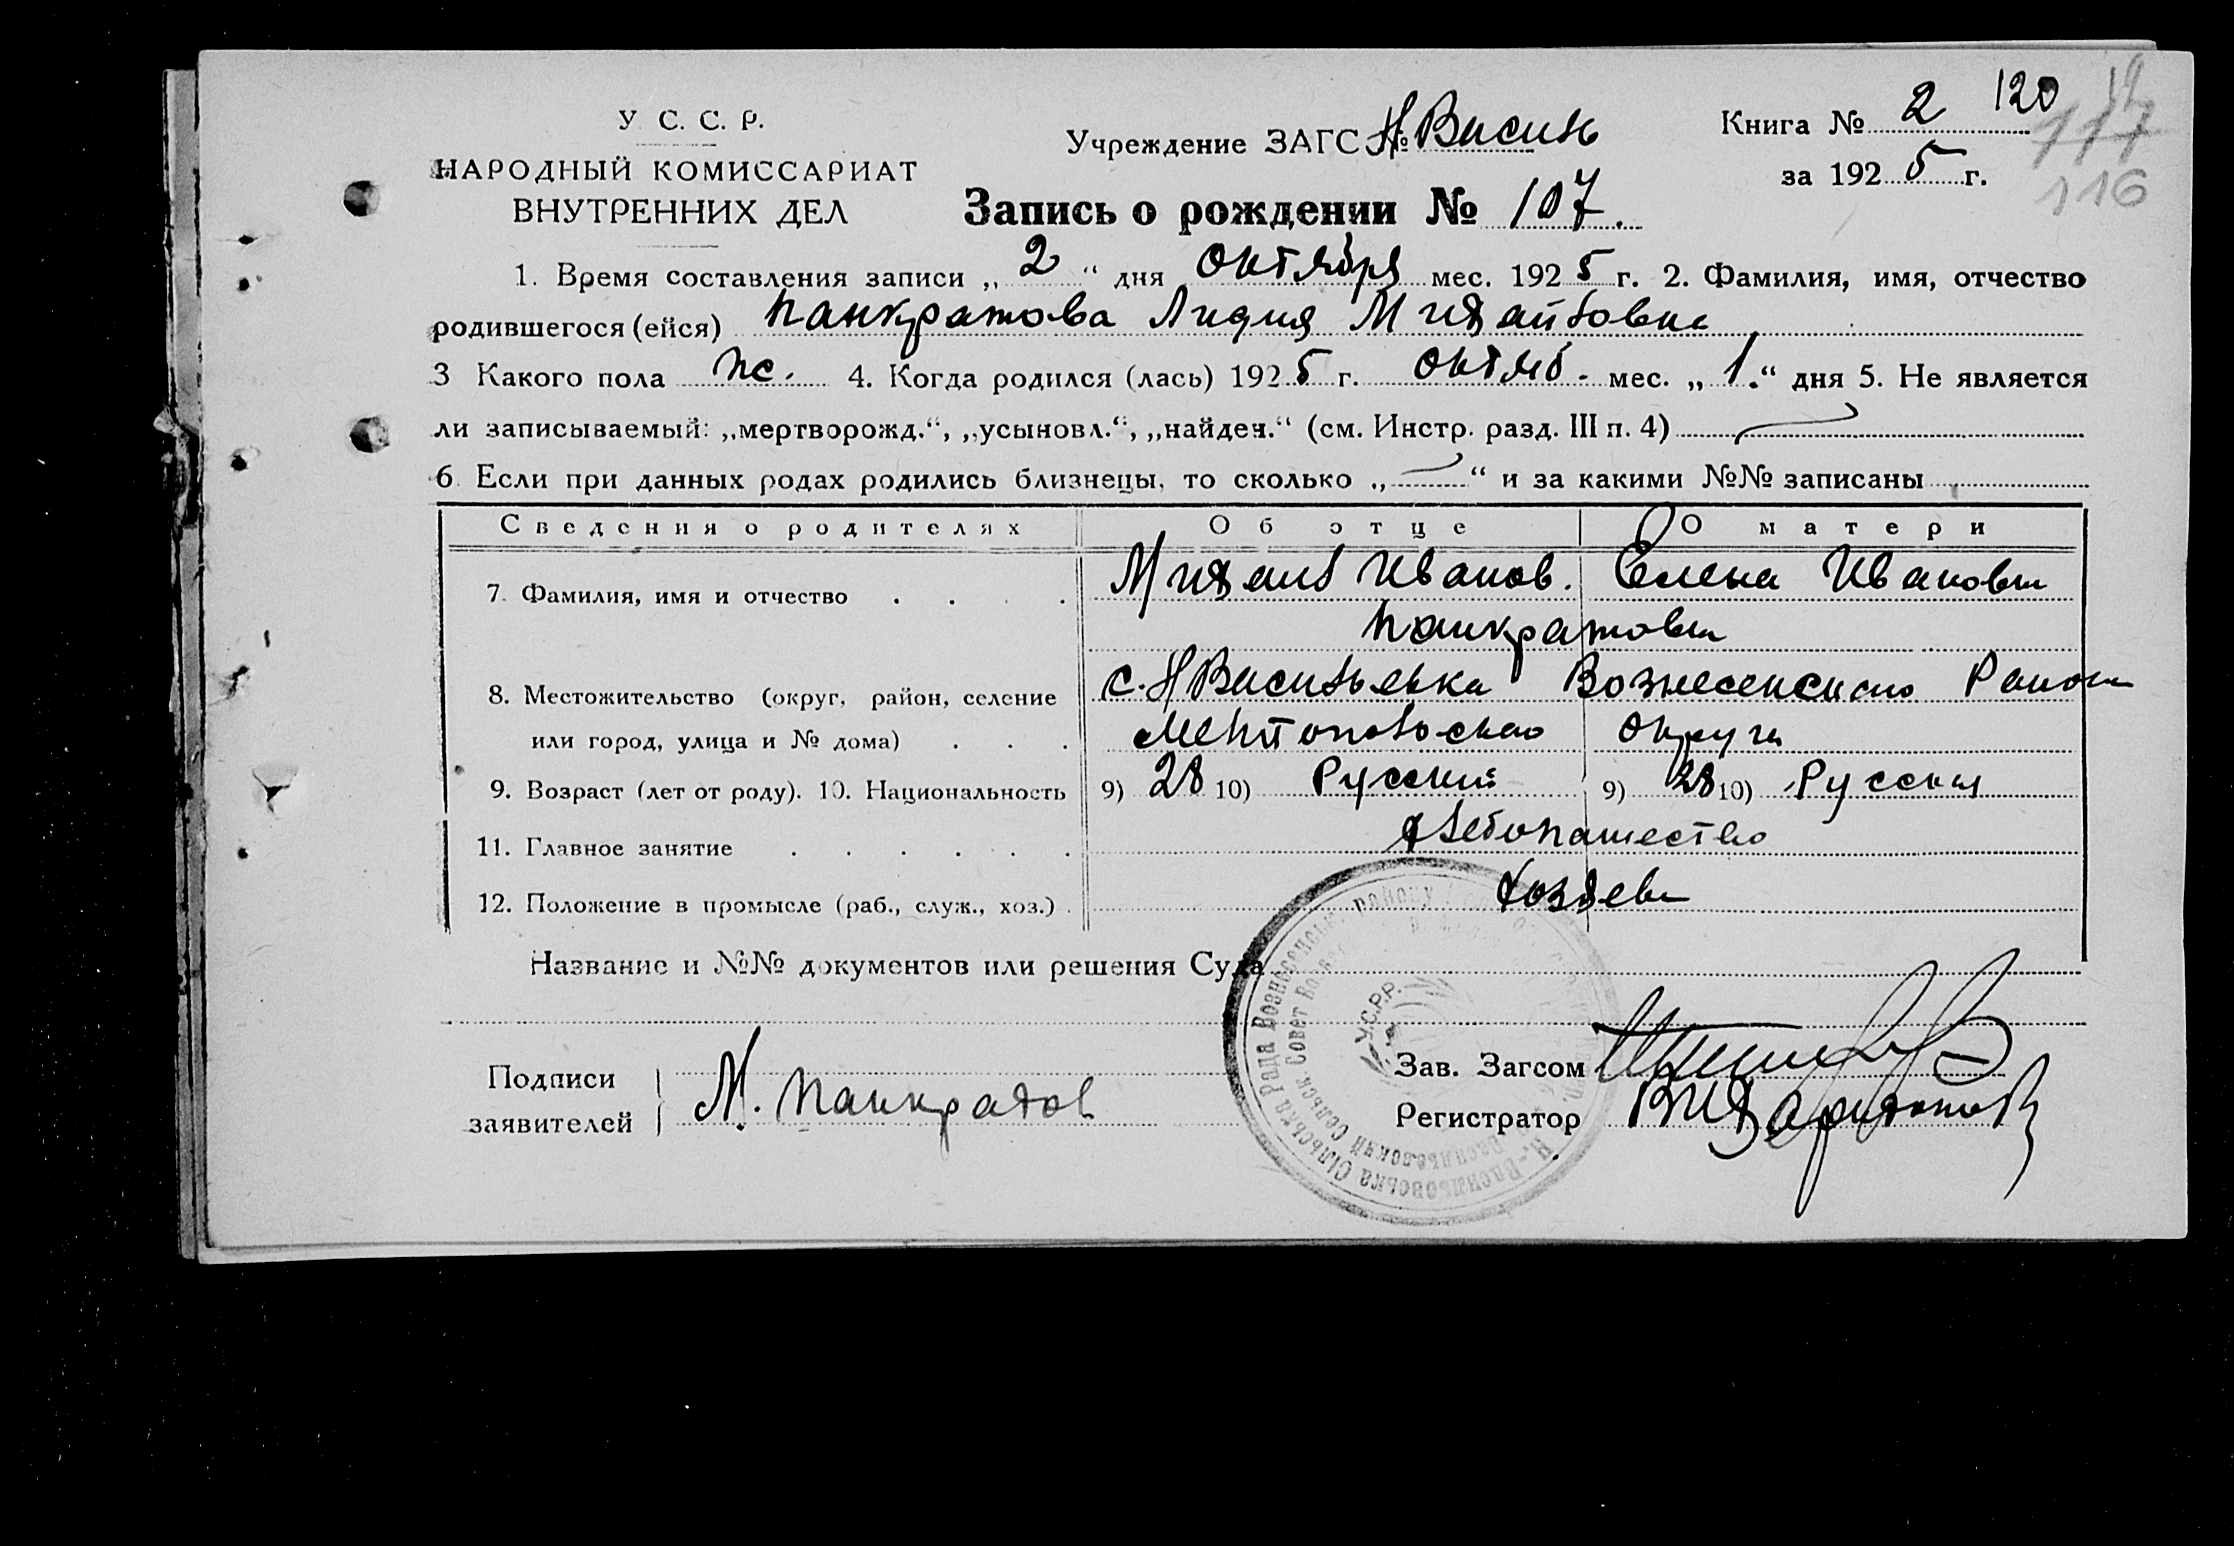 120
У. С. С. Р.
Учреждение ЗАГС № Н Василь
Книга № 2
117
НАРОДНЫЙ КОМИССАРИАТ
за 1925 г.
116
ВНУТРЕННИХ ДЕЛ
Запись о рождении № 107.
1. Время составления записи „2“ дня Октября мес. 1925 г. 2. Фамилия, имя, отчество
родившегося (ейся) Панкратова Лидия Михайловна
3 Какого пола ж. 4. Когда родился (лась) 1925 г. октяб. мес. „1.“ дня 5. Не является
ли записываемый: „мертворожд.“, „усыновл.“, „найден.“ (см. Инстр. разд. III п. 4)
6. Если при данных родах родились близнецы, то сколько „—“ и за какими №№ записаны
Сведения о родителях Об отце О матери
7. Фамилия, имя и отчество . . . . Михаил Иванов. Елена Ивановна
Панкратовы
8. Местожительство (округ, район, селение с. Н Васильевка Вознесенского Района
или город, улица и № дома) . . . Мелитопольского округа
9. Возраст (лет от роду). 10. Национальность 9) 28 10) Русский 9) 28 10) Русская
11. Главное занятие . . . . . . Хлебопашество
12. Положение в промысле (раб., служ., хоз.) . Хозяева
Название и №№ документов или решения Суда
У.С.Р.Р.
Н.-Васильовська Сільська Рада Вознесенськ. району
Подписи заявителей М. Панкратов
Зав. Загсом
Регистратор ВИХаритонов